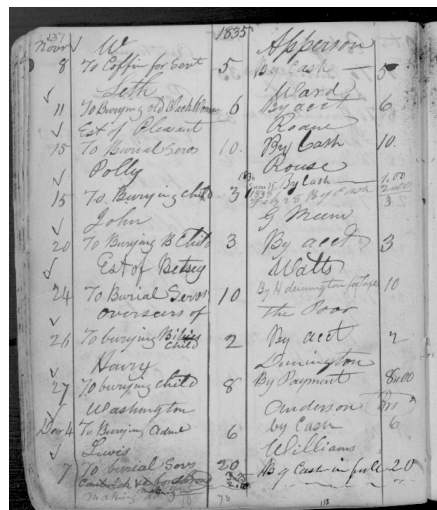 137 1835
Novr W Apperson
8 To Coffin for Servt 5 By Cash 5
Seth Ward
11 To Burying old Black Woman 6 By acct 6
Est of Pleasant Roane
15 To Burial Servs 10. By Cash 10.
Polly Rouse
15 To Burying child 3 By Cash 1.00
1838 Feby 28 By Cash 2.00
3
John G Meum
20 To Burying B Child 3 By acct 3
Est of Betsey Watts
24 To Burial Servs 10 By H 10
overseers of the Poor
26 To burying Child 2 By acct 2
Harry Dinnington
27 To burying child 8 By Payment 8.00
Washington Anderson
Dec 4 To Burying Adult 6 by Cash 6
Lewis Williams
7 To burial Servs 20 By Cash in full 20
making
78 113